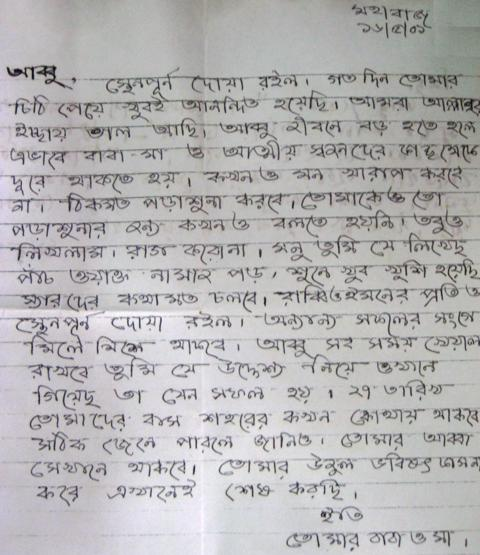 মহারাজ
১৬/৫/০১
আব্বু,
স্নেহপূর্ন দোয়া রইল। গত দিন তোমার
চিঠি পেয়ে খুবই আনন্দিত হয়েছি। আমরা আল্লাহর
ইচ্ছায় ভাল আছি। আব্বু জীবনে বড় হতে হলে
এভাবে বাবা-মা ও আত্মীয় স্বজনদের কাছ থেকে
দূরে থাকতে হয়। কখন ও মন খারাপ করবে
না। ঠিকমত পড়াশুনা করবে। তোমাকেও তো
পড়াশুনার জন্য কখন ও বলতে হয়নি। তবুও
লিখলাম। রাগ করোনা। মনু তুমি যে লিখেছ
পাঁচ ওয়াক্ত নামাজ পড়, শুনে খুব খুশি হয়েছি
স্যারদের কথামত চলবে। রাকিব ইমনের প্রতি ও
স্নেহপূর্ন দোয়া রইল। অন্যান্য সকলের সংগে
মিলে মিশে থাকবে। আব্বু সব সময় খেয়াল
রাখবে তুমি যে উদ্দেশ্য নিয়ে ওখানে
গিয়েছ তা যেন সফল হয়। ২৭ তারিখ
তোমাদের বাস শহরের কখন কোথায় থাকবে
সঠিক জেনে পারলে জানিও। তোমার আব্বা
সেখানে থাকবে। তোমার উজ্জল ভবিষ্যৎ কামনা
করে এখানেই শেষ করছি।
ইতি
তোমার বাবা ও মা।